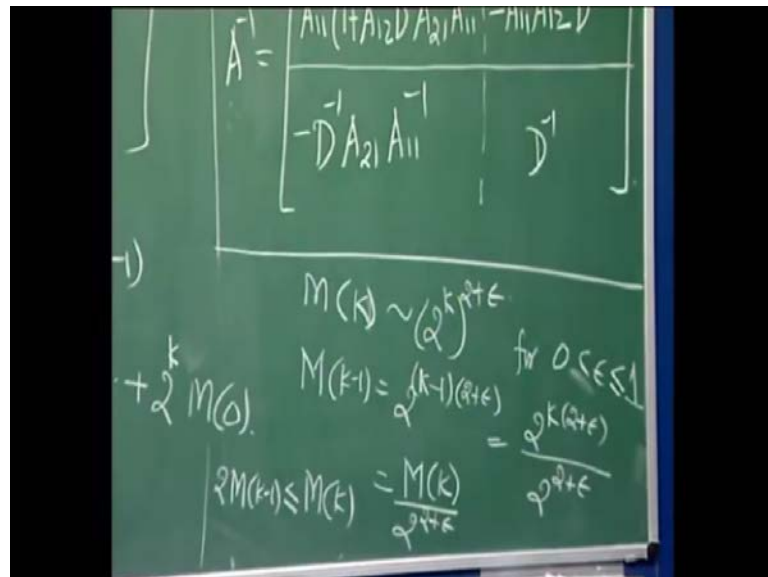 A⁻¹ = [ A₁₁(I+A₁₂D A₂₁A₁₁ | -A₁₁A₁₂D
-D⁻¹A₂₁A₁₁⁻¹ | D⁻¹ ]
-1)
M(k) ~ (2^k)^{2+ϵ}
for 0 ≤ ϵ ≤ 1
+ 2^k M(0).
M(k-1) = 2^{(k-1)(2+ϵ)}
= 2^{k(2+ϵ)} / 2^{2+ϵ}
2M(k-1) ≤ M(k)
= M(k) / 2^{2+ϵ}